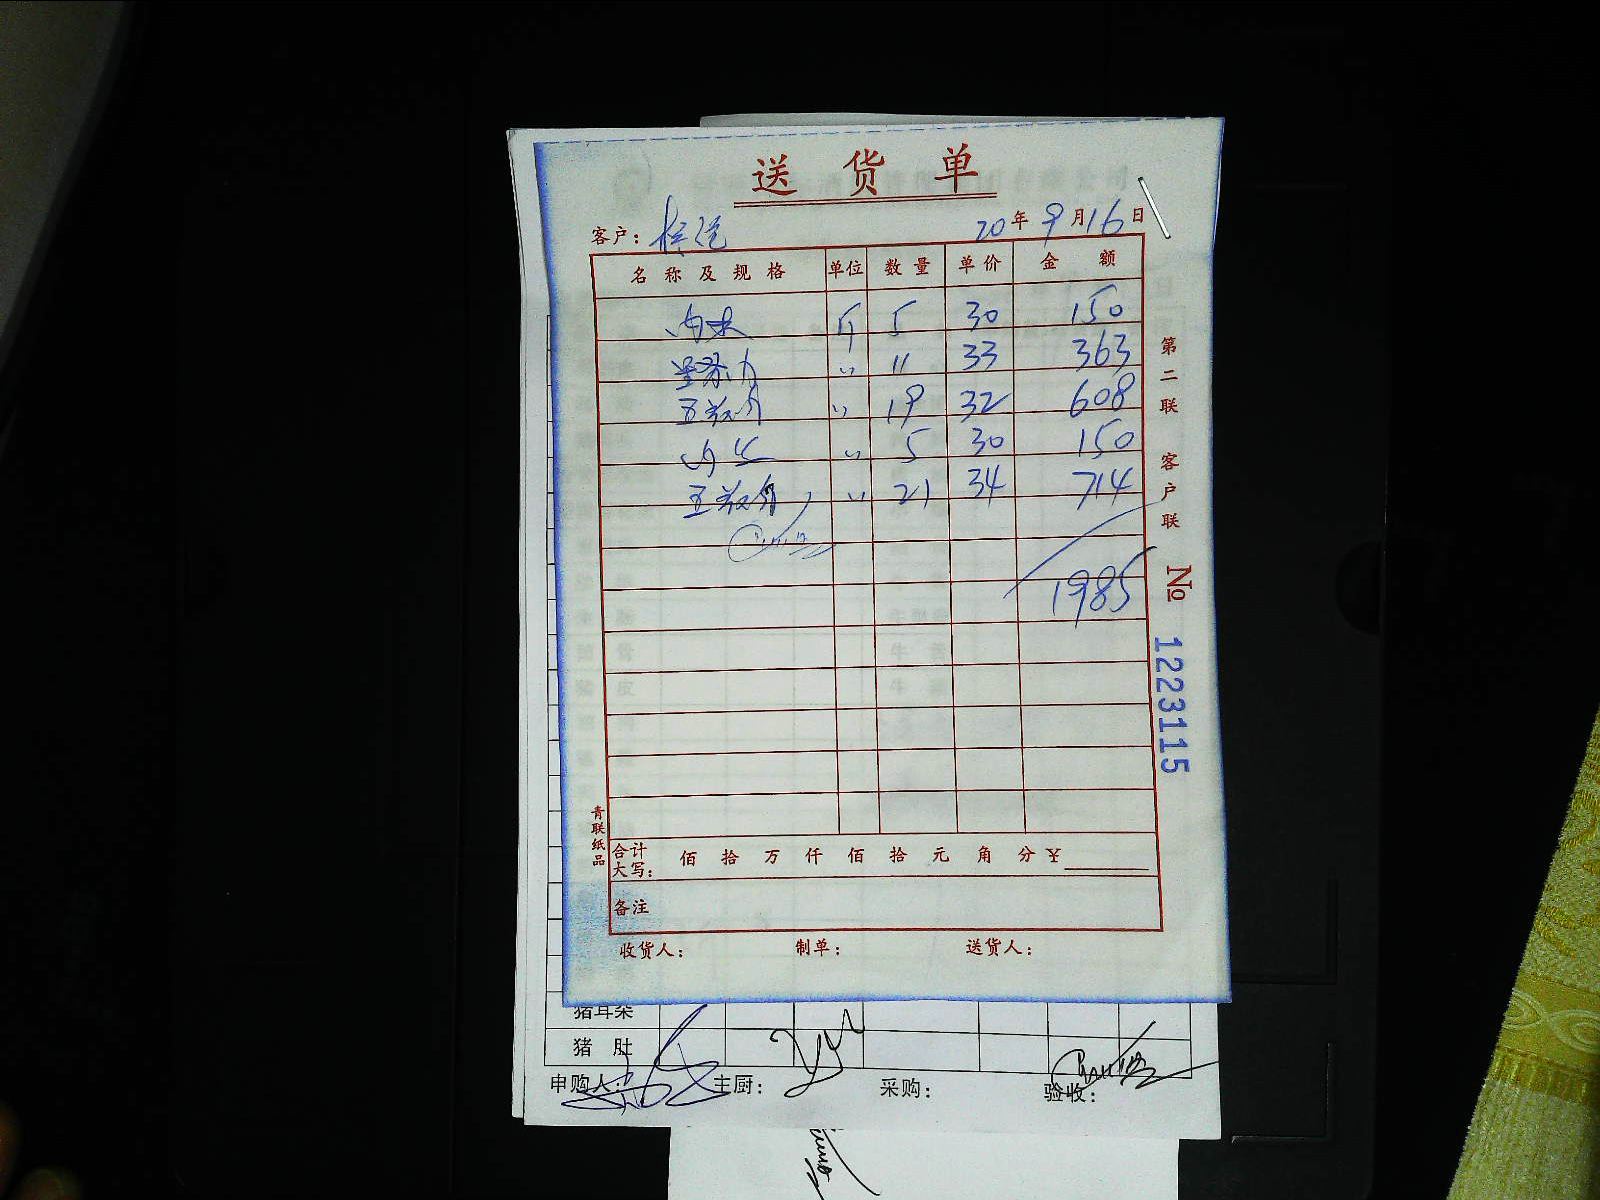 送货单
客户： 20年9月16日
名称及规格 单位 数量 单价 金额
肉末 斤 5 30 150
里脊肉 〃 11 33 363
五花肉 〃 19 32 608
肉 〃 5 30 150
五花肉 〃 21 34 714
1985
合计大写： 佰 拾 万 仟 佰 拾 元 角 分 ¥
备注
收货人： 制单： 送货人：
第二联 客户联
№ 1223115
青联纸品
猪耳朵
猪肚
申购人： 主厨： 采购： 验收：